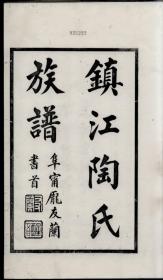 鎮江陶氏
族譜
阜甯龐友蘭
書首